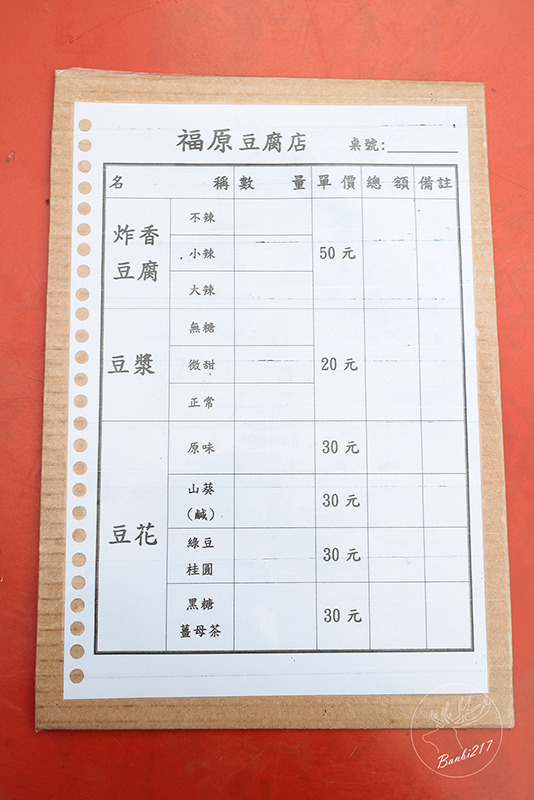 福原豆腐店 桌號:
名稱 數量 單價 總額 備註
炸香
豆腐
不辣
小辣
大辣
50元
豆漿
無糖
微甜
正常
20元
豆花
原味
30元
山葵
(鹹)
30元
綠豆
桂圓
30元
黑糖
薑母茶
30元
Banbi217